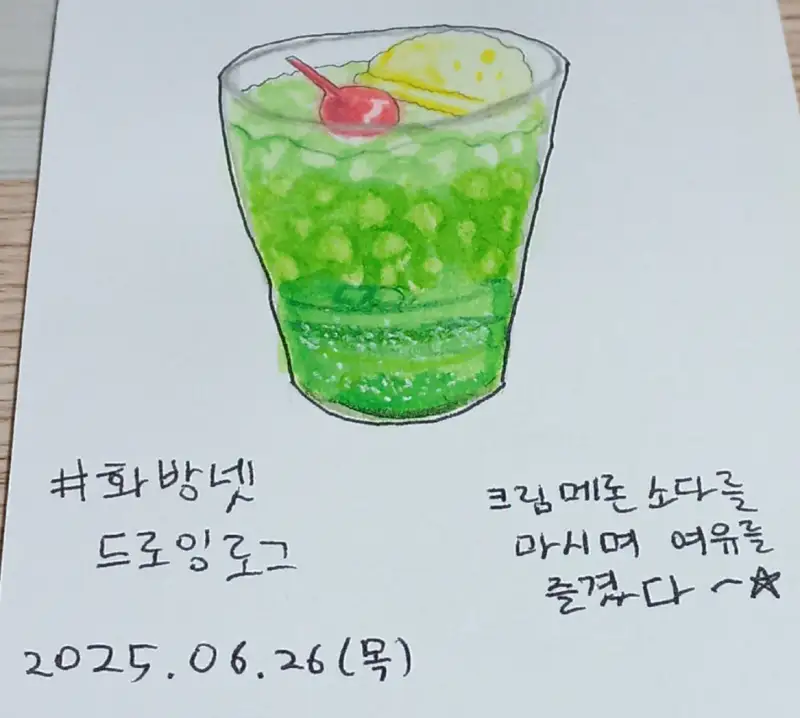 #화방넷
드로잉로그
크림메론 소다를
마시며 여유를
즐겼다~☆
2025.06.26(목)